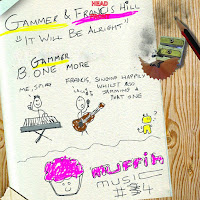 HEAD
GAMMER & FRANCIS HILL
"IT WILL BE ALRIGHT"
B GAMMER
ONE MORE
ME, SPLIFF
FRANCIS, SINGING HAPPILY
WHILST ALSO
JAMMING A
PHAT ONE
MUFFIN
MUSIC
#34